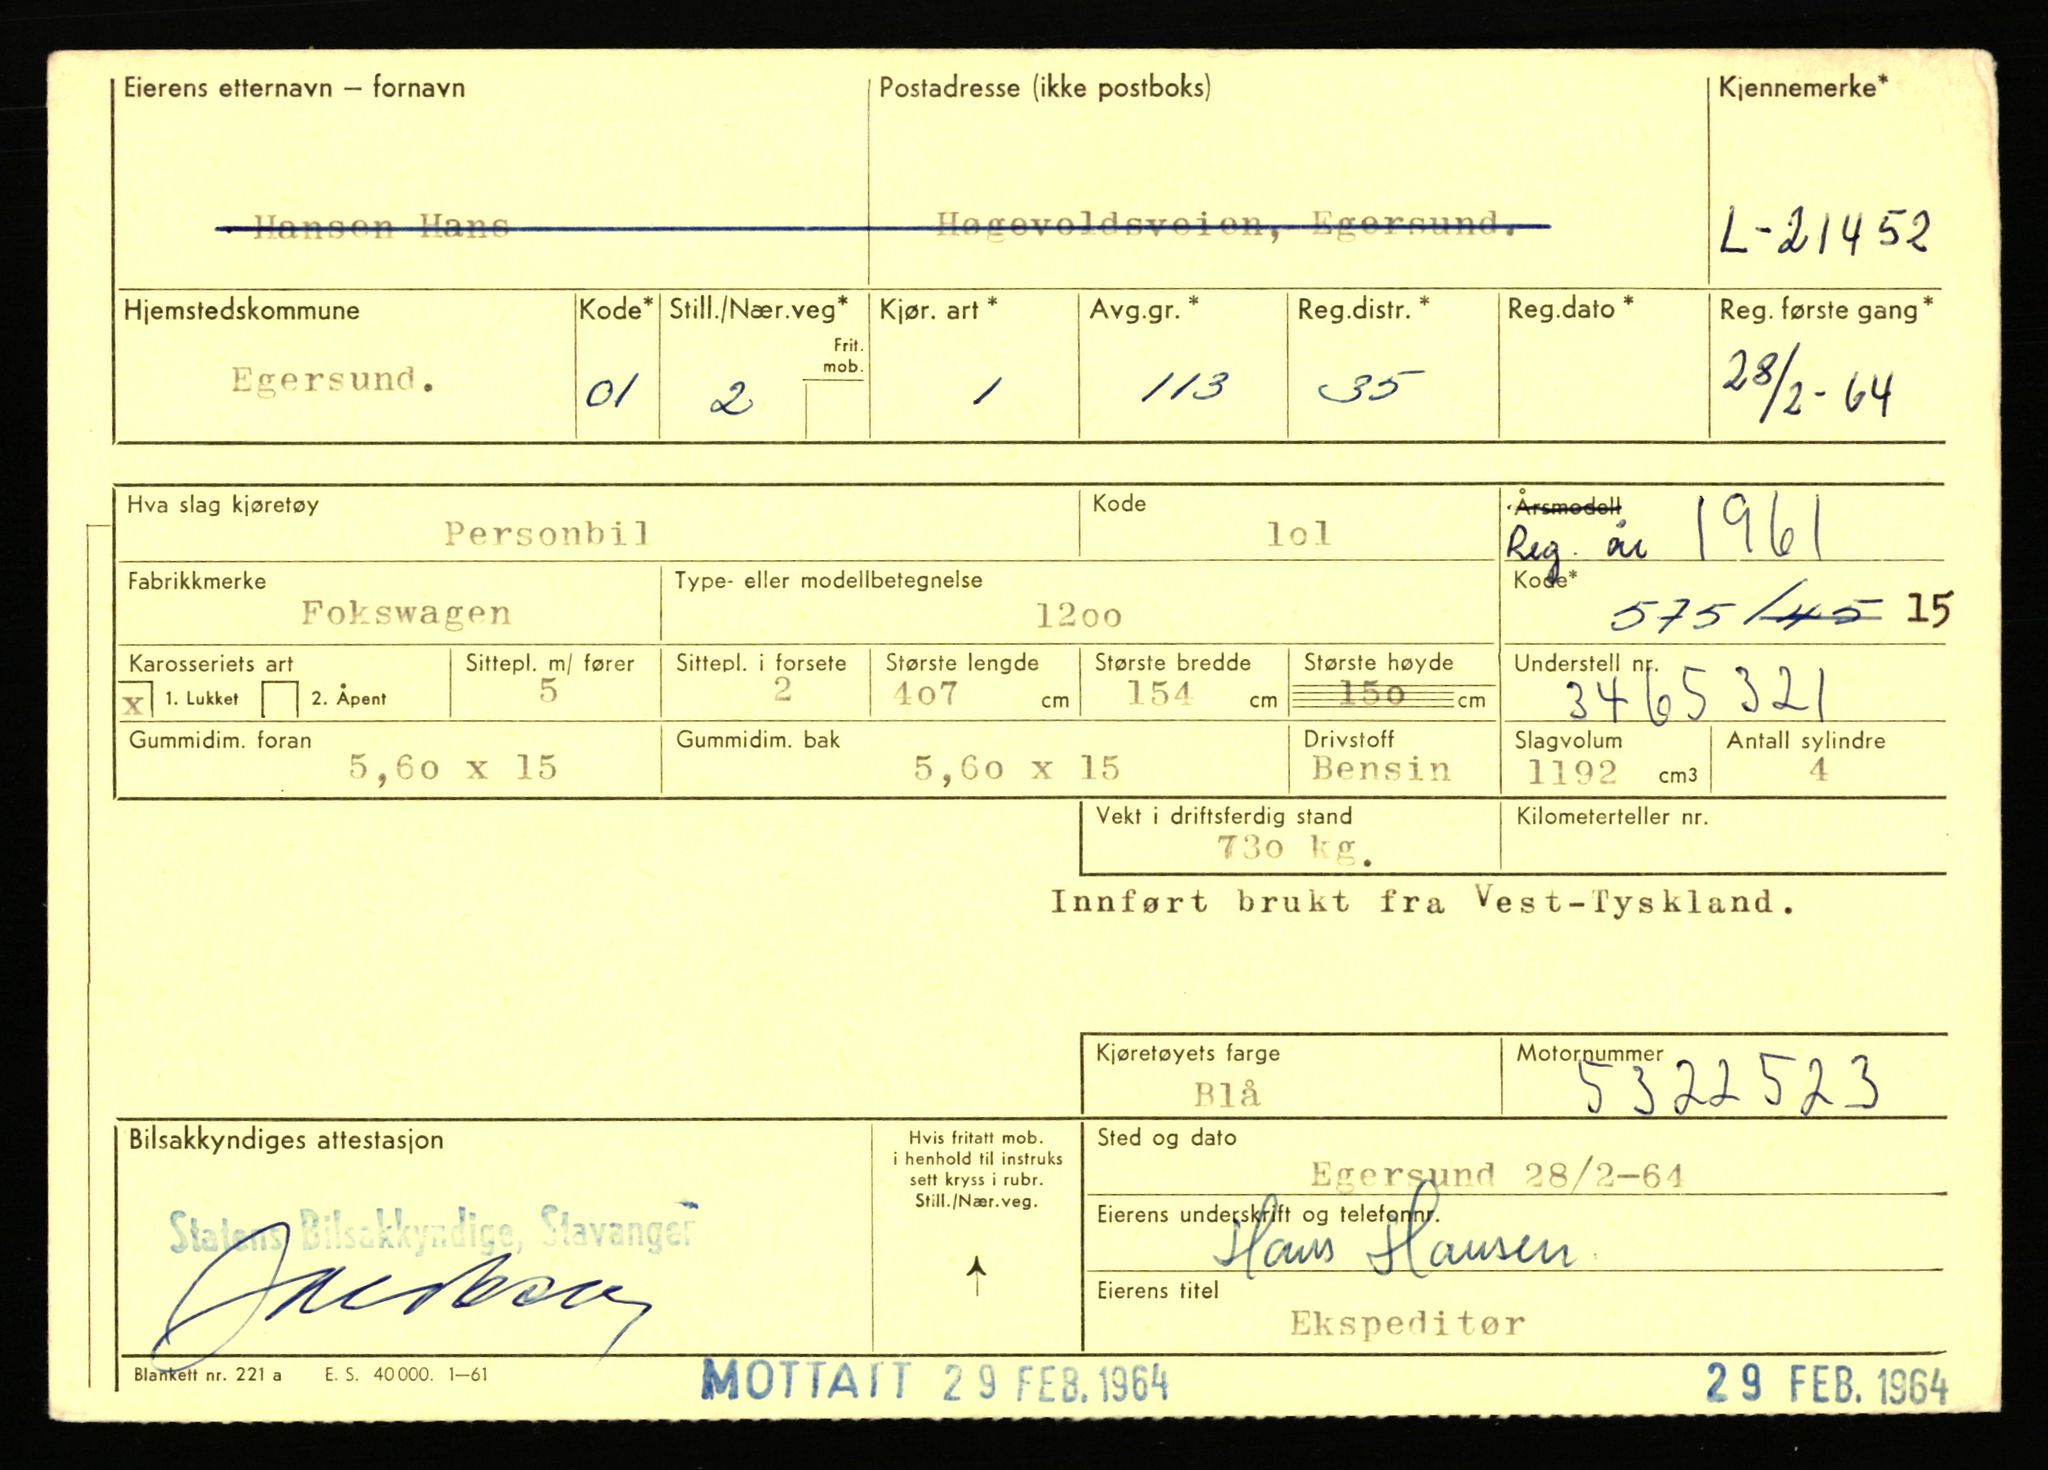 Eierens etternavn – fornavn Postadresse (ikke postboks) Kjennemerke*
Hansen Hans Høgevoldsveien, Egersund. L-21452
Hjemstedskommune Kode* Still./Nær.veg* Kjør. art* Avg.gr.* Reg.distr.* Reg.dato* Reg. første gang*
Frit.
mob.
Egersund. 01 2 1 113 35 28/2-64
Hva slag kjøretøy Kode Årsmodell
Personbil 1o1 Reg. år 1961
Fabrikkmerke Type- eller modellbetegnelse Kode*
Fokswagen 12oo 575/45 15
Karosseriets art Sittepl. m/ fører Sittepl. i forsete Største lengde Største bredde Største høyde Understell nr.
x 1. Lukket 2. Åpent 5 2 4o7 cm 154 cm 15o cm 3465321
Gummidim. foran Gummidim. bak Drivstoff Slagvolum Antall sylindre
5,6o x 15 5,6o x 15 Bensin 1192 cm3 4
Vekt i driftsferdig stand Kilometerteller nr.
73o kg.
Innført brukt fra Vest-Tyskland.
Kjøretøyets farge Motornummer
Blå 5322523
Bilsakkyndiges attestasjon Hvis fritatt mob. Sted og dato
i henhold til instruks
sett kryss i rubr. Egersund 28/2-64
Still./Nær.veg.
Statens Bilsakkyndige, Stavanger Eierens underskrift og telefonnr.
Hans Hansen
Eierens titel
Ekspeditør
Blankett nr. 221 a E. S. 40 000. 1–61 MOTTATT 29 FEB. 1964 29 FEB. 1964